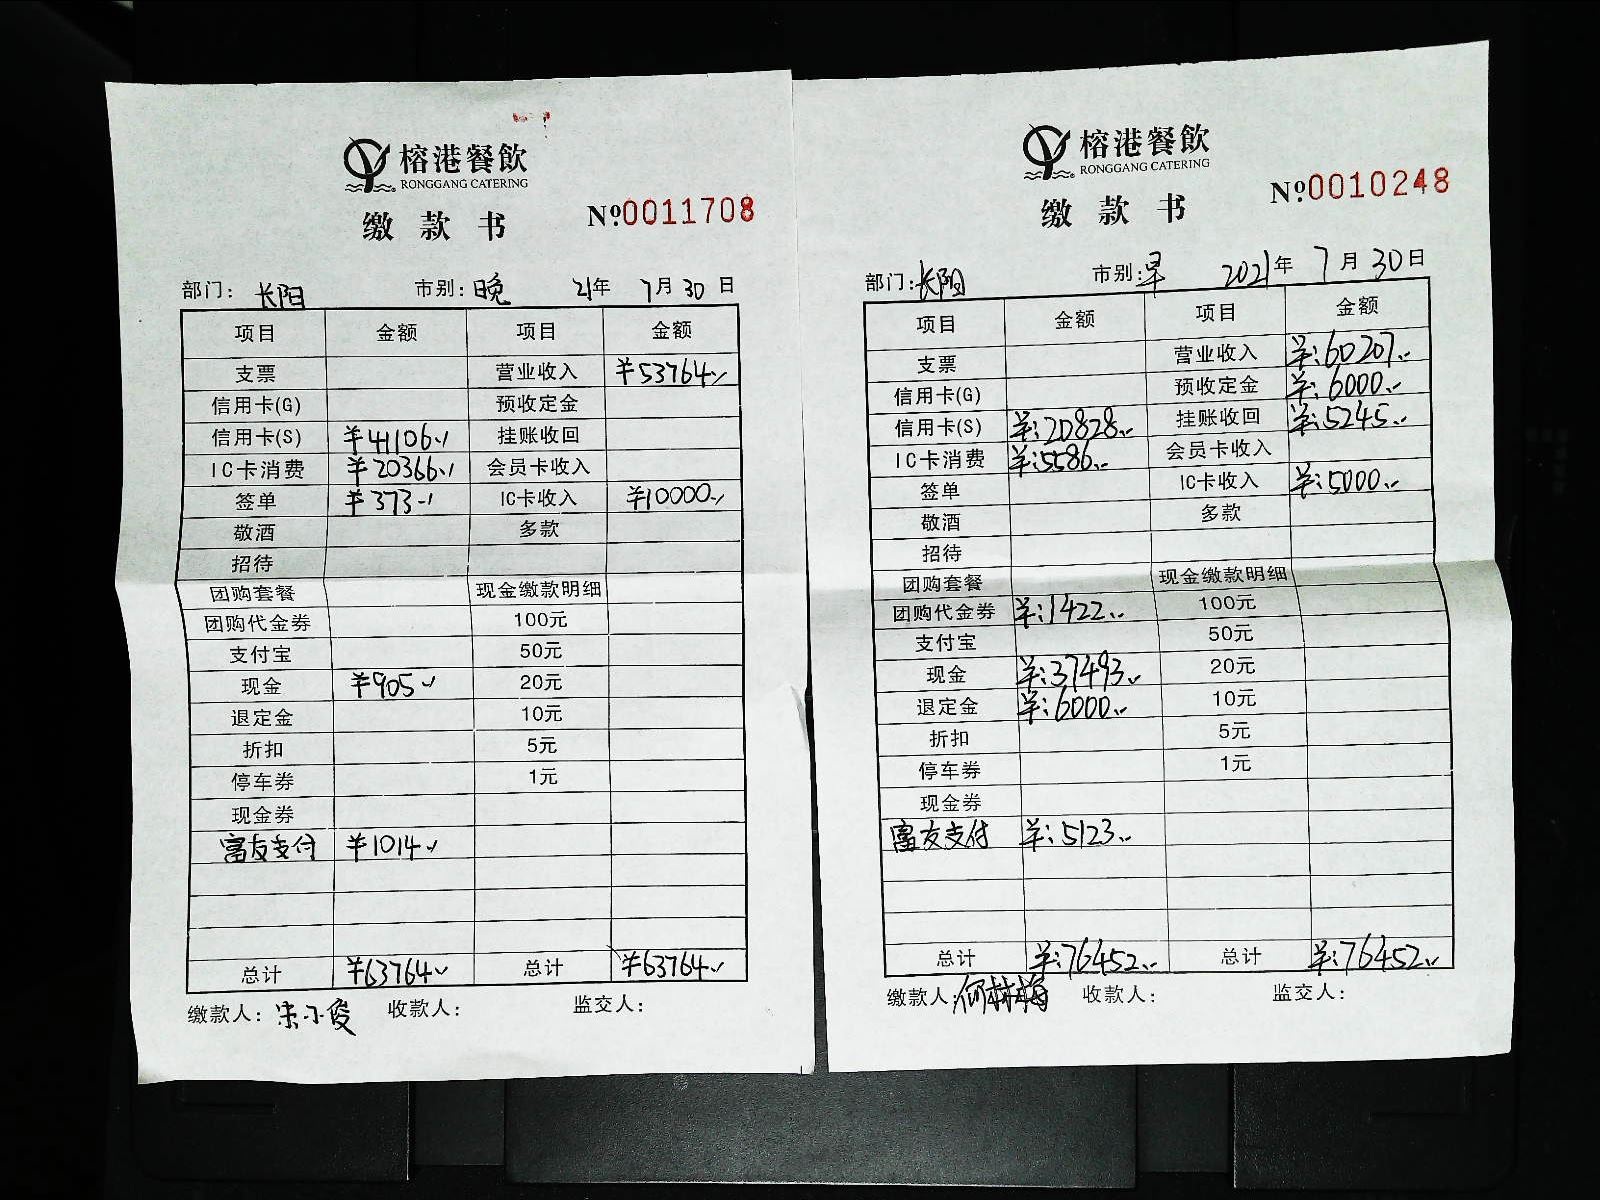 榕港餐飲
RONGGANG CATERING
缴款书 №0011708
部门：长阳 市别：晚 21年7月30日
项目 金额 项目 金额
支票 营业收入 ¥53764
信用卡(G) 预收定金
信用卡(S) ¥41106 挂账收回
IC卡消费 ¥20366 会员卡收入
签单 ¥373 IC卡收入 ¥10000
敬酒 多款
招待
团购套餐 现金缴款明细
团购代金券 100元
支付宝 50元
现金 ¥905 20元
退定金 10元
折扣 5元
停车券 1元
现金券
富友支付 ¥1014
总计 ¥63764 总计 ¥63764
缴款人：宋小俊 收款人： 监交人：
榕港餐飲
RONGGANG CATERING
缴款书 №0010248
部门：长阳 市别：早 2021年7月30日
项目 金额 项目 金额
支票 营业收入 ¥:60207
信用卡(G) 预收定金 ¥:6000
信用卡(S) ¥:20828 挂账收回 ¥:5245
IC卡消费 ¥:5586 会员卡收入
签单 IC卡收入 ¥:5000
敬酒 多款
招待
团购套餐 现金缴款明细
团购代金券 ¥:1422 100元
支付宝 50元
现金 ¥:37493 20元
退定金 ¥:6000 10元
折扣 5元
停车券 1元
现金券
富友支付 ¥:5123
总计 ¥:76452 总计 ¥:76452
缴款人：何林梅 收款人： 监交人：